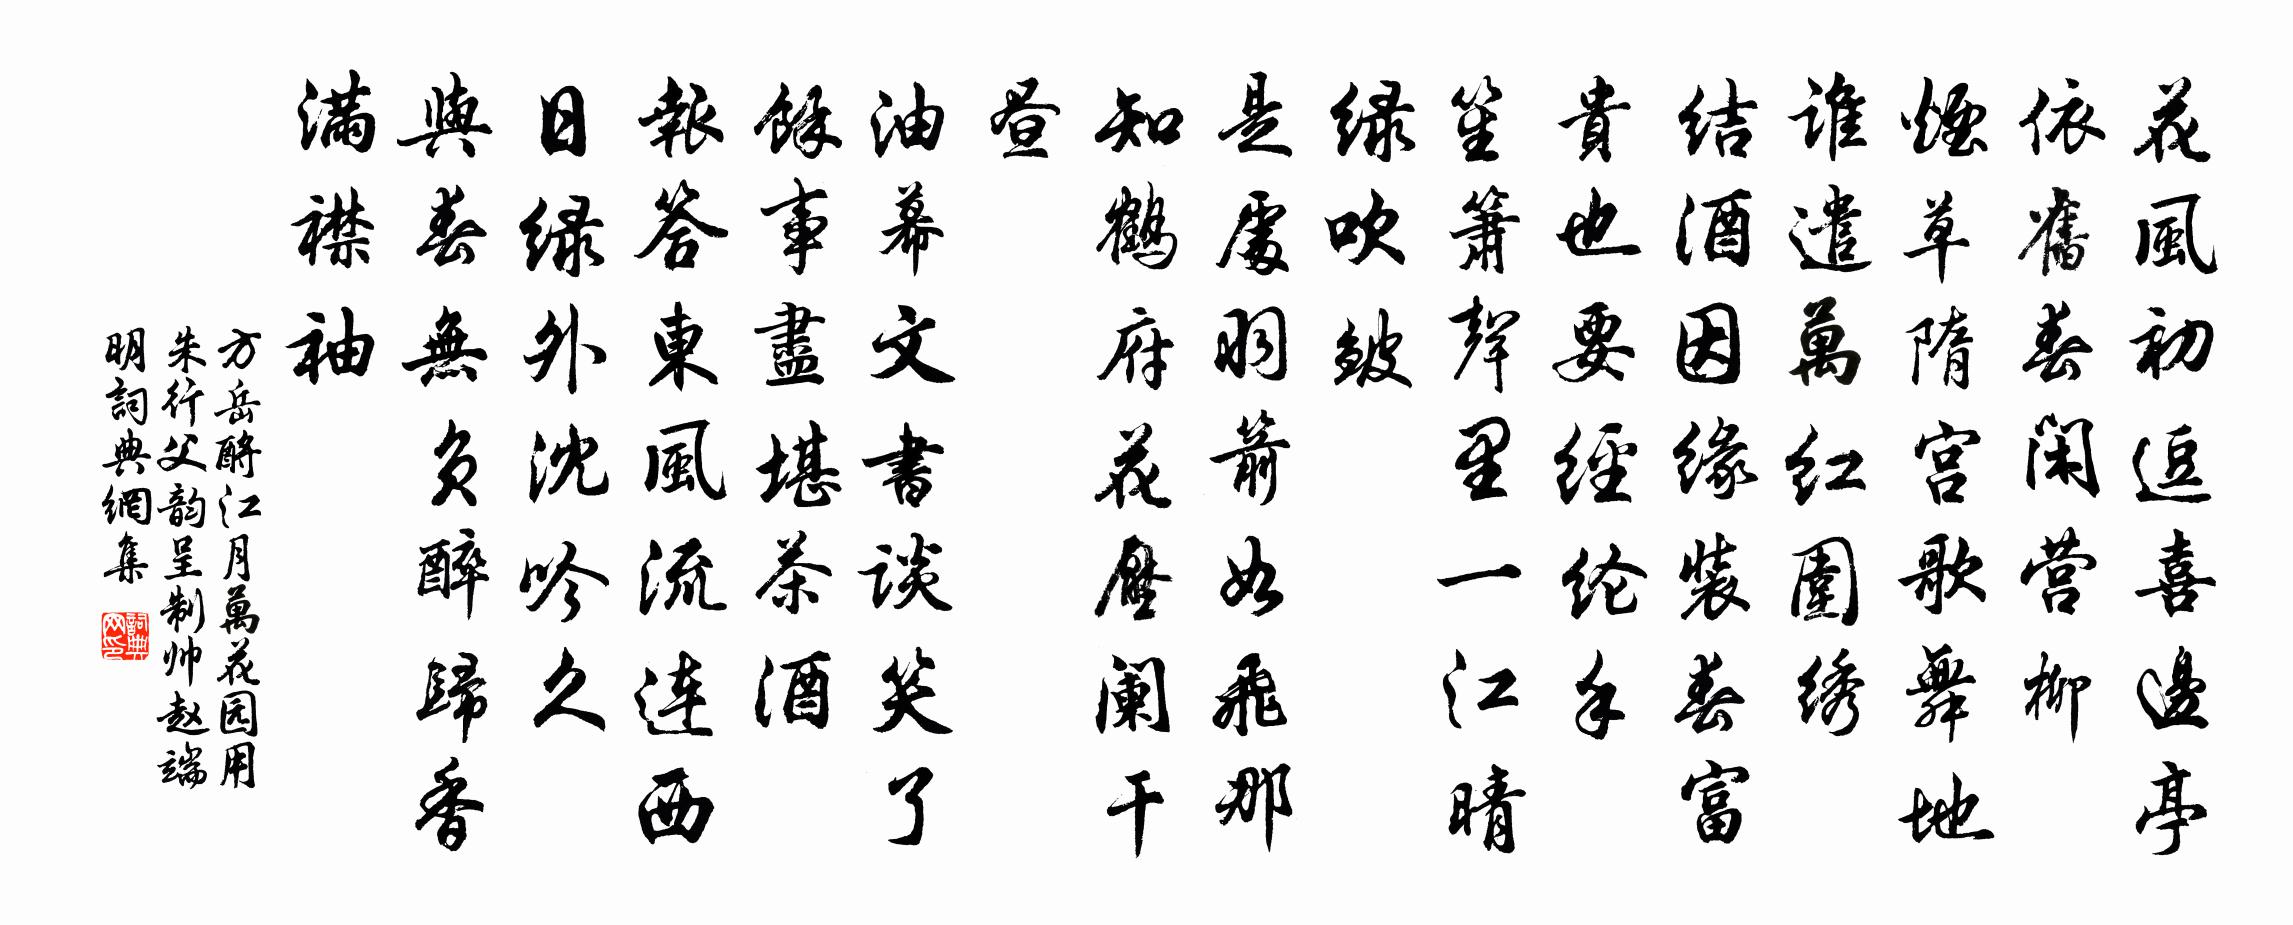 花風初逗喜邊亭
依舊春閑營柳
煙草隋宫歌舞地
誰遣萬紅圍绣
结酒因缘裝春富
貴也要經纶手
笙簫聲里一江晴
绿吹皱
是處羽箭如飛那
知鶴府花壓阑干
昼
油幕文書談笑了
餘事盡堪茶酒
報答東風流连西
日绿外沈吟久
與春無負醉歸香
满襟袖
方岳酹江月萬花园用
朱行父韵呈制帅赵端
明詞典網集
詞典网印